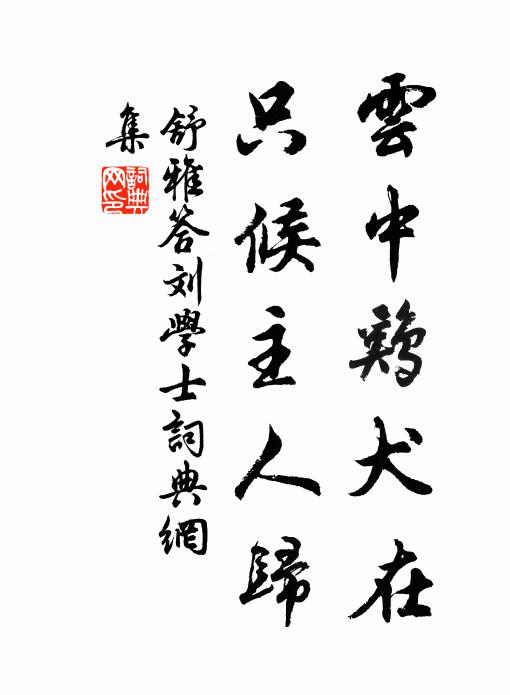 雲中鷄犬在
只候主人歸
舒雅答刘學士詞典網
集
詞典网印